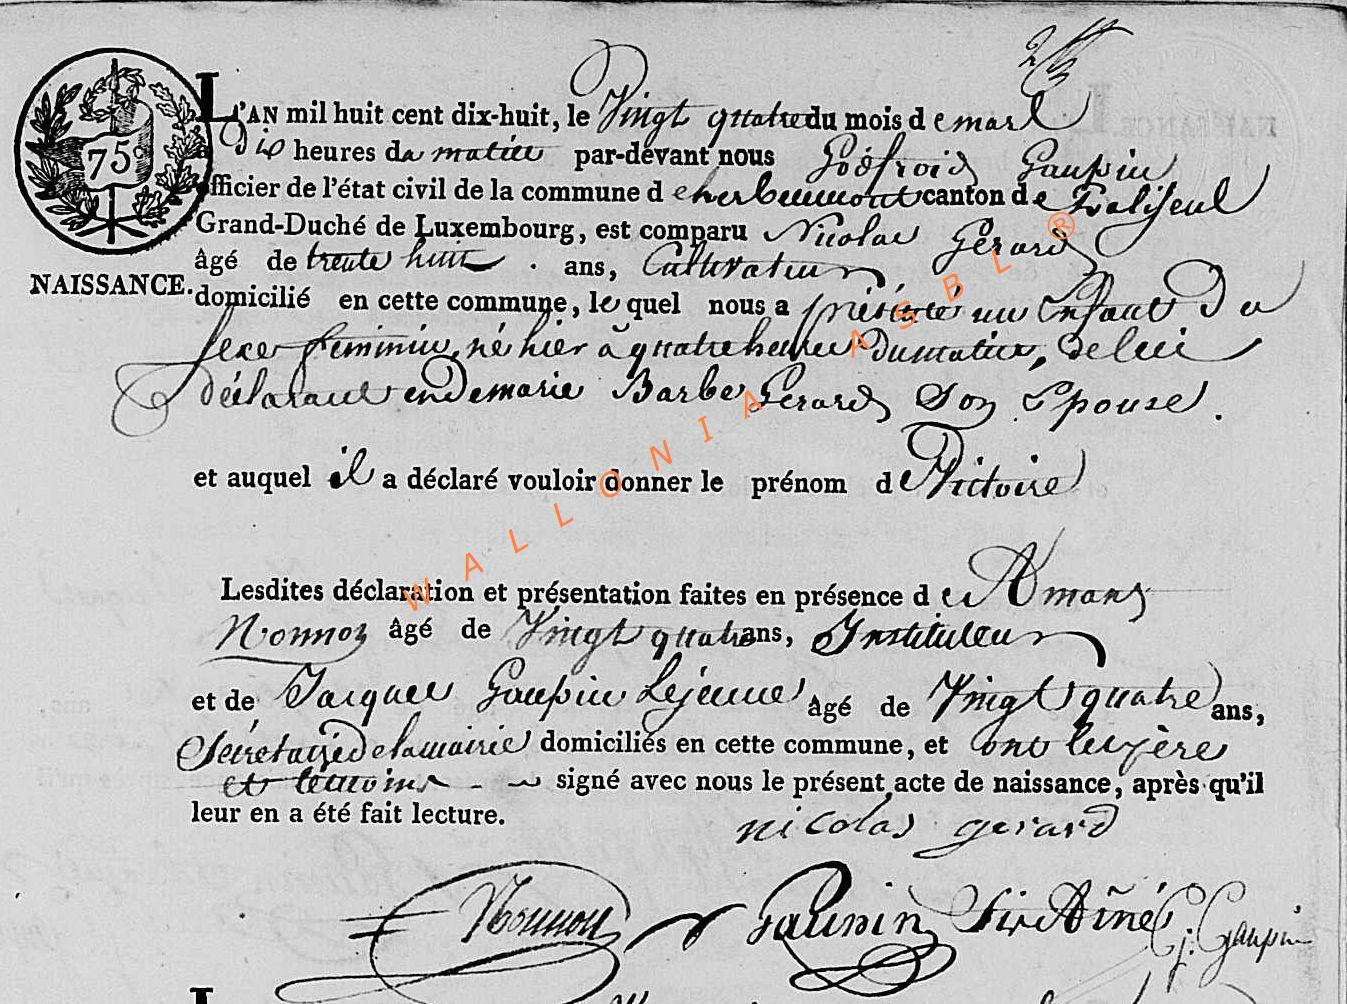 75c
NAISSANCE.
L'AN mil huit cent dix-huit, le Vingt quatre du mois de mars
a Dix heures du matin par-devant nous Godfroid Gaupin
officier de l'état civil de la commune d'herbeumont canton de
Grand-Duché de Luxembourg, est comparu Nicolas Gerard
âgé de trente huit ans, Cultivateur
domicilié en cette commune, lequel nous a présenté un Enfant Du
sexe feminin, né hier à quatre heures Du matin, de lui
déclarant en De marie Barbe Gerard Son Epouse.
et auquel il a déclaré vouloir donner le prénom de Victoire
Lesdites déclaration et présentation faites en présence de Amand
Nonnon âgé de Vingt quatre ans, Instituteur
et de Jacques Gaupin Lejeune âgé de Vingt quatre ans,
Sécretaire de la mairie domiciliés en cette commune, et ont le père
et temoins signé avec nous le présent acte de naissance, après qu'il
leur en a été fait lecture.
nicolas gerard
Nonnon Gaupin J. Gaupin
WALLONIA ASBL ®